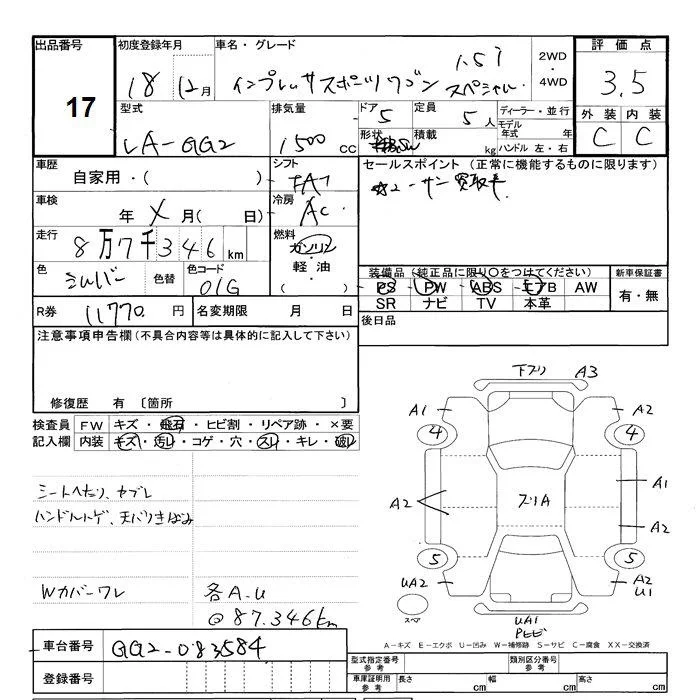 出品番号 初度登録年月 車名・グレード 評価点
17
18 12月 インプレッサスポーツワゴン 1.5i スペシャル
2WD ・ 4WD
3.5
型式 排気量 ドア 定員 ディーラー・並行 外装 内装
LA-GG2 1500 CC 5 5人 モデル年式 年 C C
形状 積載 kg ハンドル 左・右
車歴 シフト セールスポイント (正常に機能するものに限ります)
自家用・( ) FAT
ユーザー買取車
車検 年 X 月( 日) 冷房 AC
走行 8万7千346km 燃料 ガソリン
軽油
( )
色 シルバー 色替 色コード 01G
装備品(純正品に限り○をつけてください) 新車保証書
PS PW ABS エアB AW 有・無
SR ナビ TV 本革
R券 11770 円 名変期限 月 日 後日品
注意事項申告欄(不具合内容等は具体的に記入して下さい)
修復歴 有 〔箇所 〕
検査員 FW キズ・飛石・ヒビ割・リペア跡・×要
記入欄 内装 キズ・汚れ・コゲ・穴・スレ・キレ・破れ
シートへたり、ヤブレ
ハンドルトゲ、天バリきばみ
Wカバーワレ 各A.U
@87.346km
下ブリ A3
A1 A2
4 4
A1
A2 ズリA
A2
5 5
UA2 A2
U1
スペア UA1
A-キズ E-エクボ U-凹み W-補修跡 S-サビ C-腐食 XX-交換済
車台番号 GG2-083584
型式指定番号 参考 類別区分番号 参考
登録番号 車庫証明用 参考 長さ cm 幅 cm 高さ cm